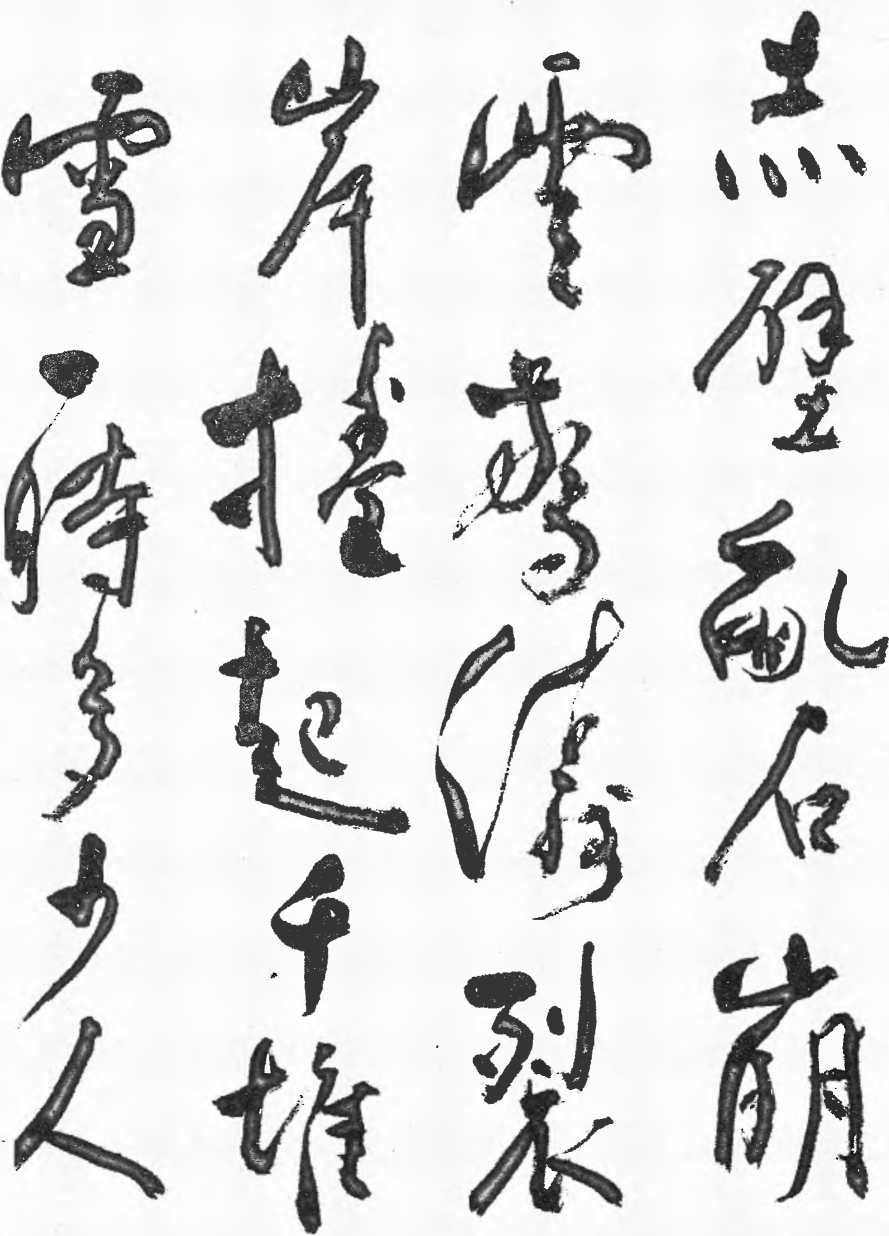 赤壁亂石崩
雲驚濤裂
岸捲起千堆
雪一時多少人